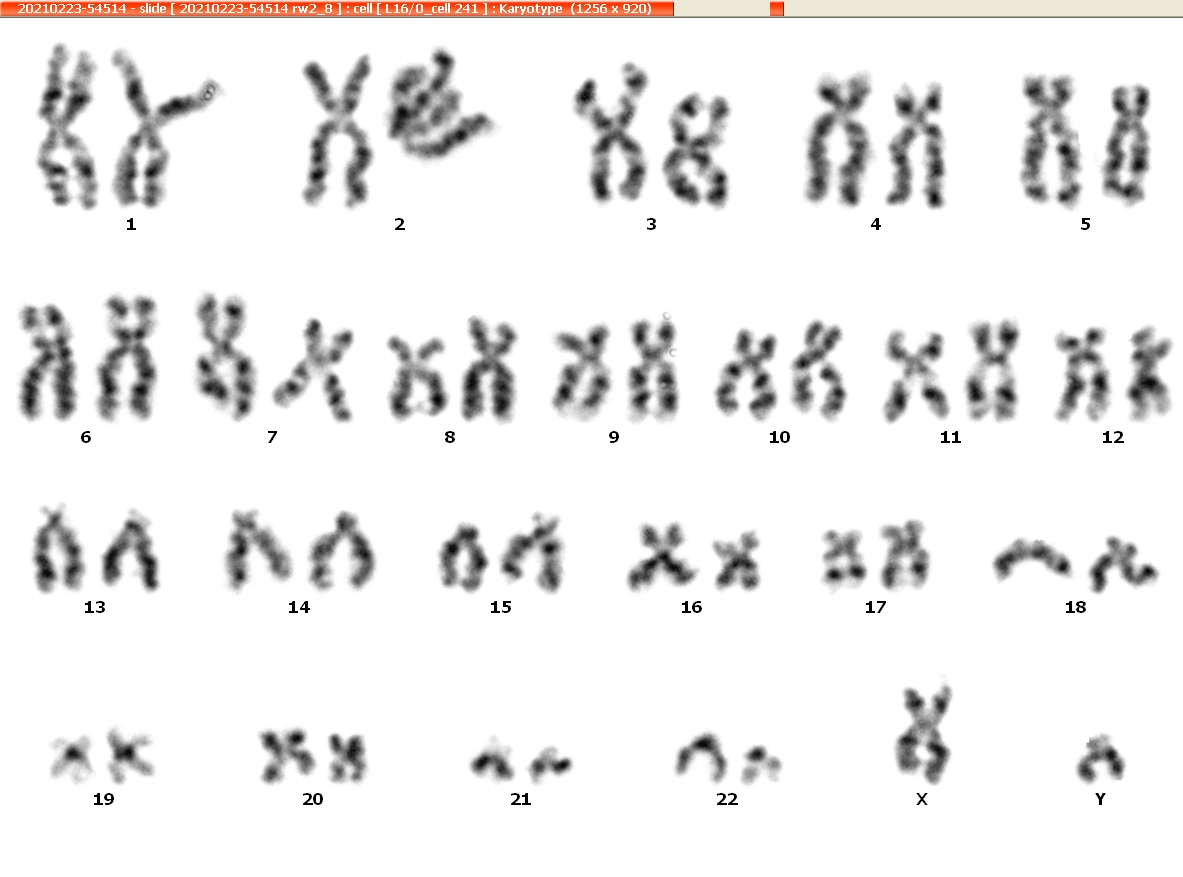 20210223-54514 - slide [ 20210223-54514 rw2_8 ] : cell [ L16/0_cell 241 ] : Karyotype (1256 x 920)
1 2 3 4 5
6 7 8 9 10 11 12
13 14 15 16 17 18
19 20 21 22 X Y